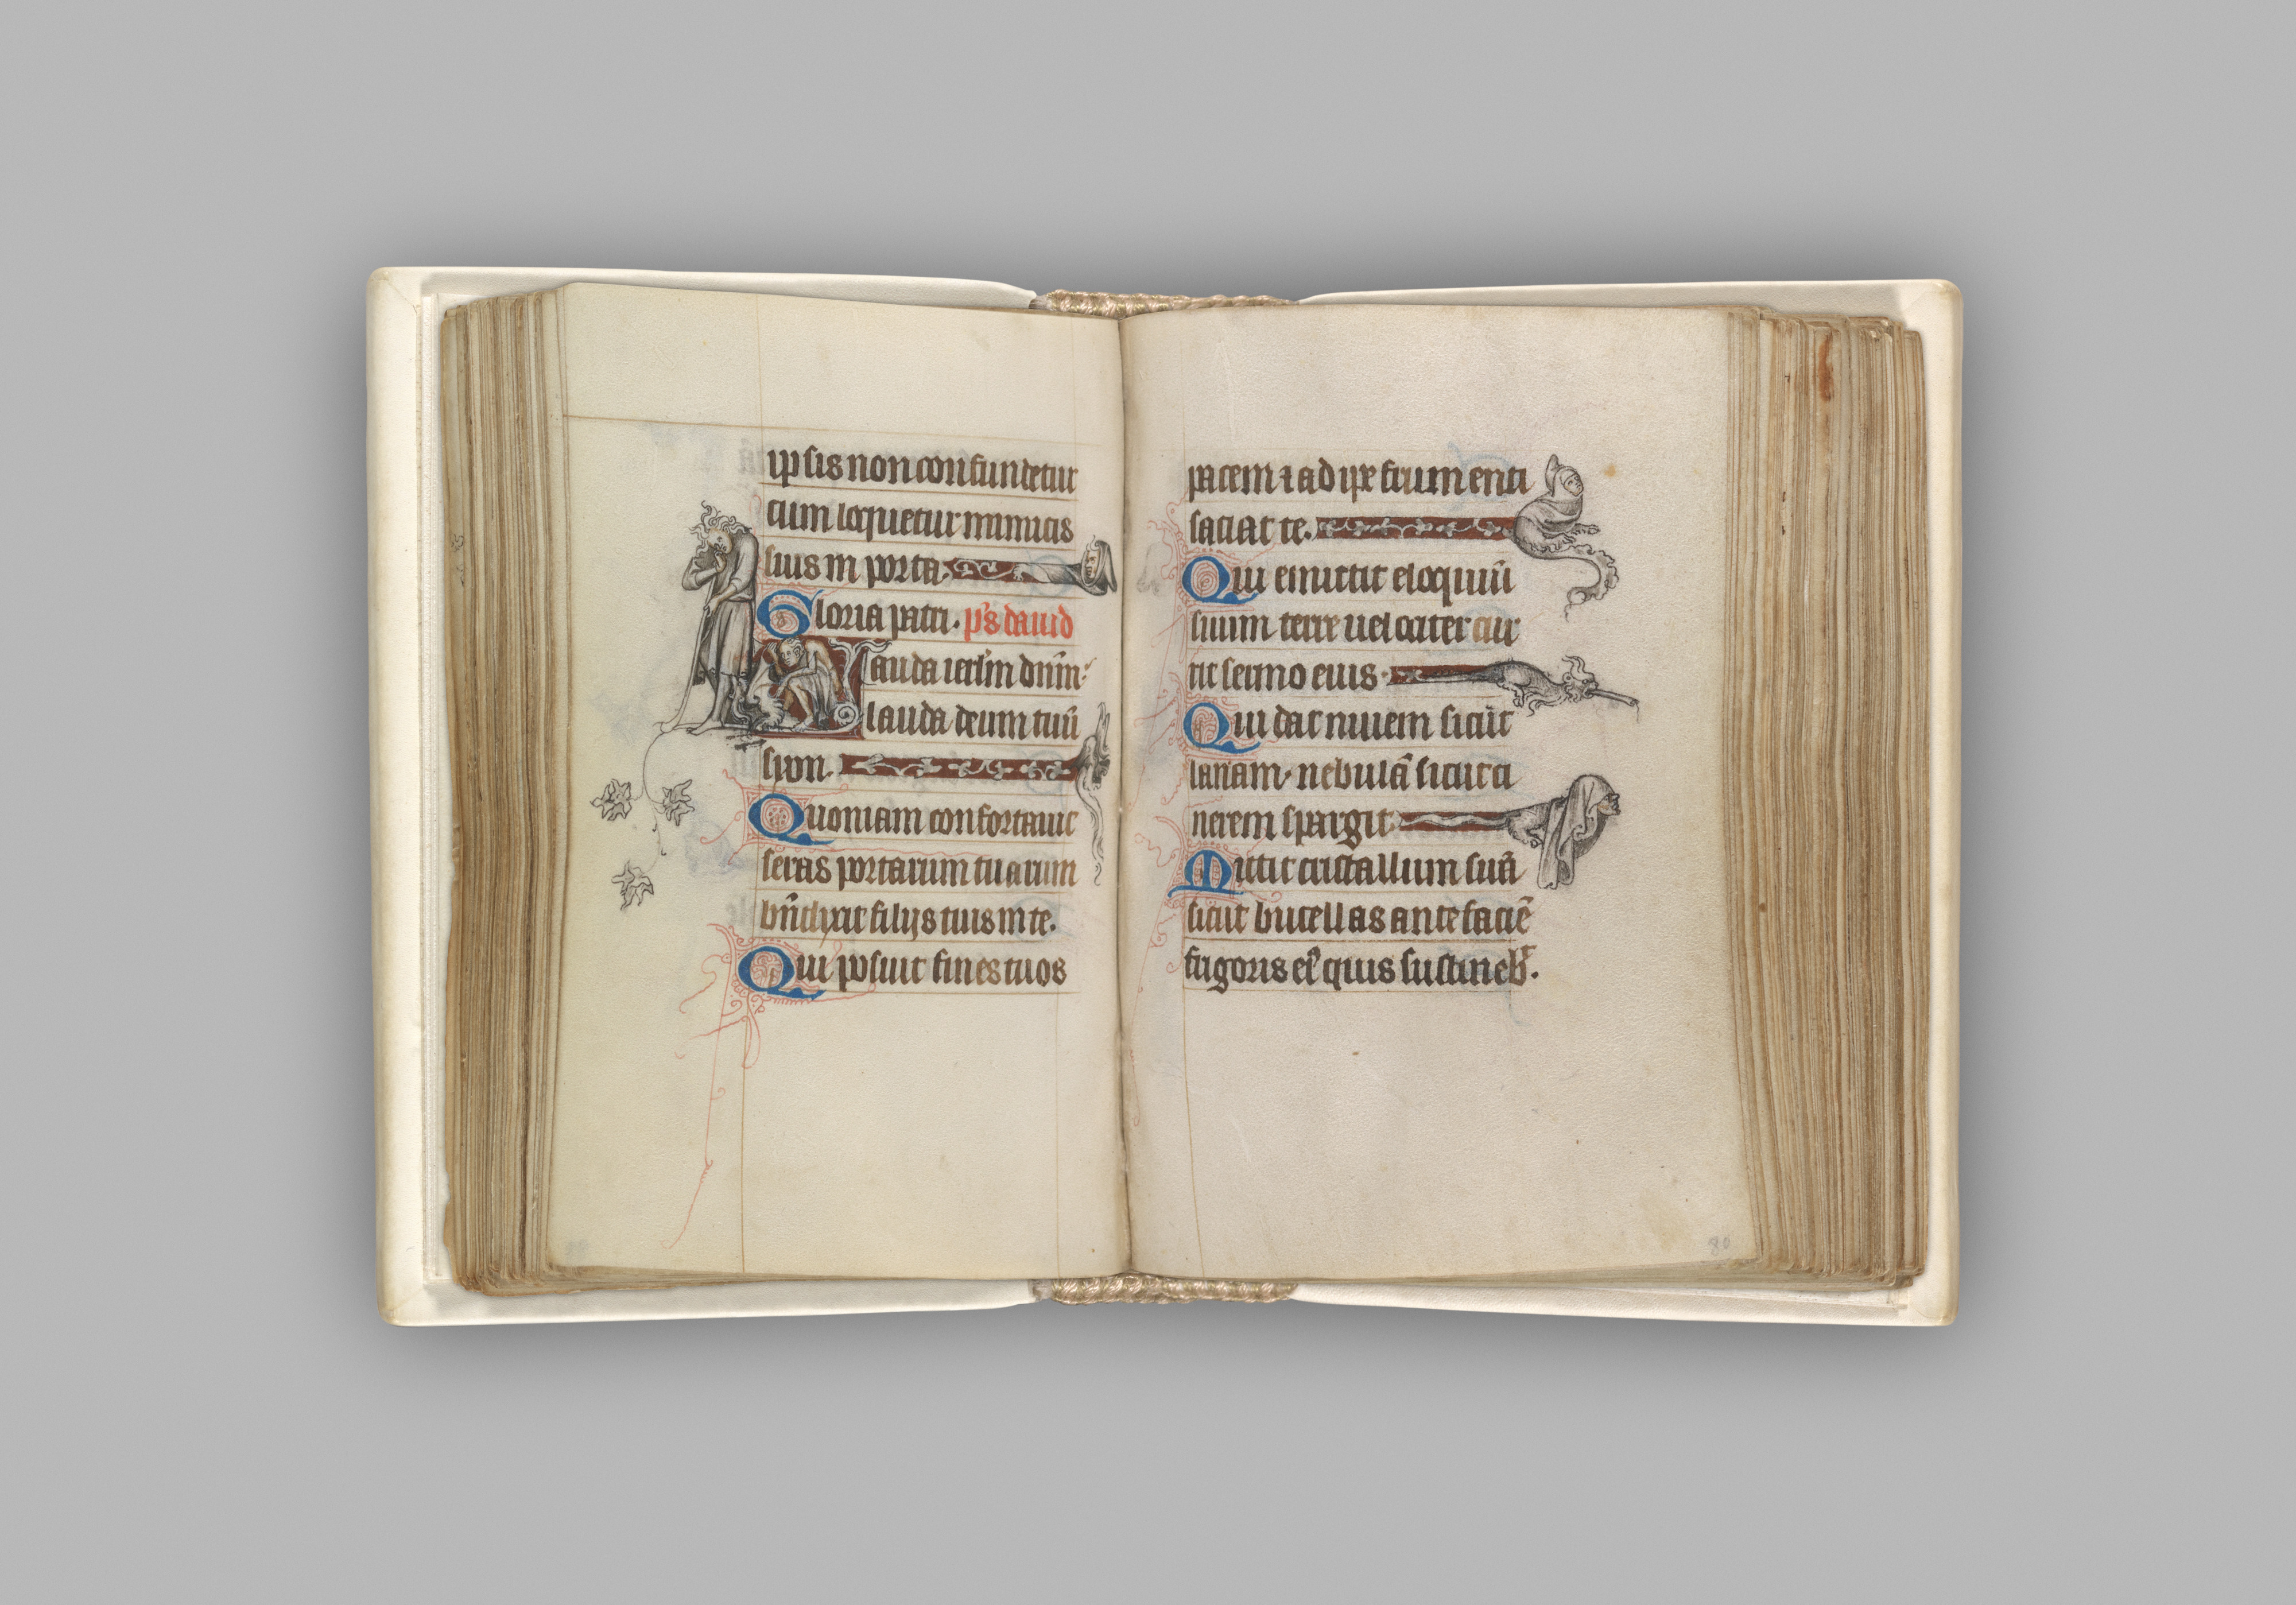 ipsis non confundetur
cum loquetur inimicis
suis in porta.
Gloria patri. ps̄ dauid
Lauda ierlm̄ dnm̄:
lauda deum tuū
syon.
Quoniam confortauit
seras portarum tuarum
bn̄dixit filijs tuis in te.
Qui posuit fines tuos
pacem ⁊ adipe frumenti
saciat te.
Qui emittit eloquiū
suum terre uelociter cur
rit sermo eius.
Qui dat niuem sicut
lanam. nebulā sicut ci
nerem spargit.
Mittit cristallum suū
sicut bucellas ante faciē
frigoris eiꝰ quis sustineb̄.
80